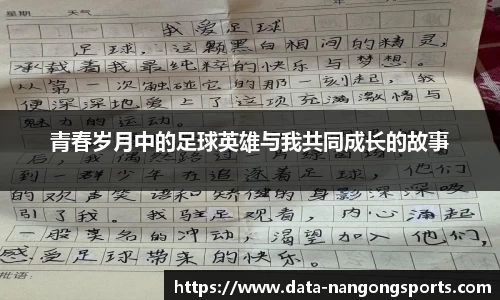 星期 天气
我爱足球
足球,这颗黑白相间的精灵,
承载着我最纯粹的快乐与梦想。
从第一次触碰它的那一刻起,我
便深深地爱上了这项充满激情与
魅力的运动。
青春岁月中的足球英雄与我共同成长的故事
后,我偶然路过
到一群少年在追逐着足球,他们
的欢声笑语和矫健的身影深深吸
引了我。我驻足观看,内心涌起
一股莫名的冲动,渴望加入他们,
感受足球带来的快乐。
批语:
https://www.data-nangongsports.com